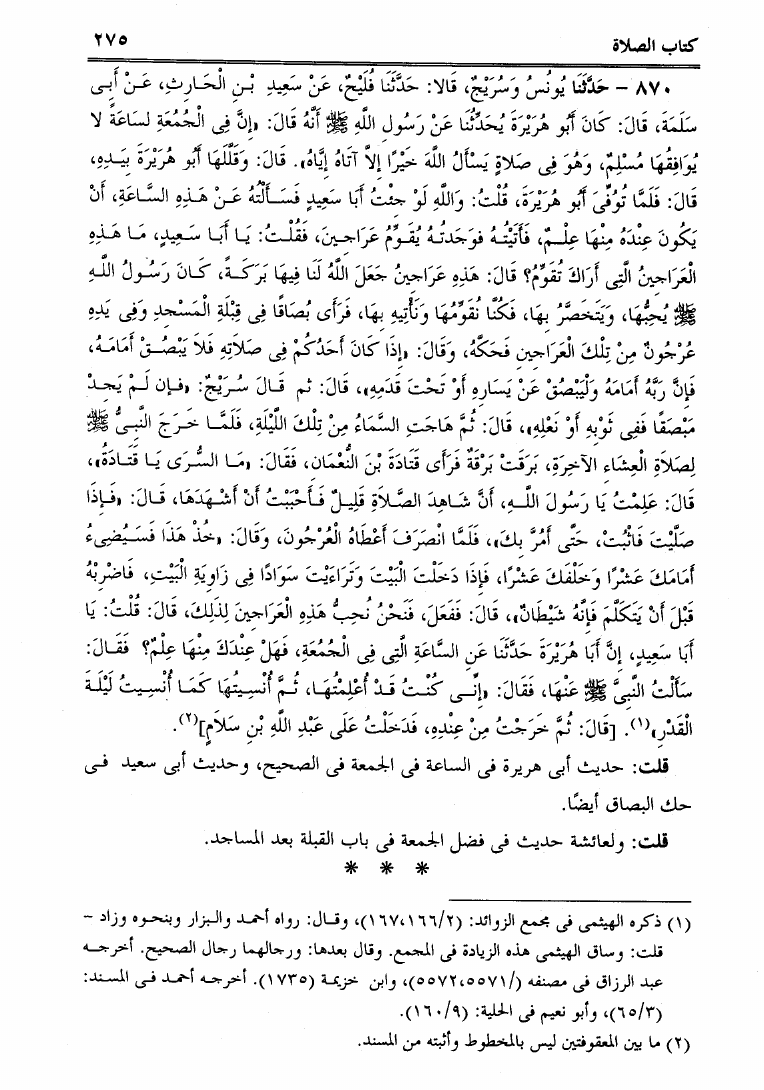 كتاب الصلاة ٢٧٥
٨٧٠ – حَدَّثَنَا يُونُسُ وَسُرَيْجٌ، قَالا: حَدَّثَنَا فُلَيْحٌ، عَنْ سَعِيدِ بْنِ الْحَارِثِ، عَنْ أَبِى
سَلَمَةَ، قَالَ: كَانَ أَبُو هُرَيْرَةَ يُحَدِّثُنَا عَنْ رَسُولِ اللَّهِ ﷺ أَنَّهُ قَالَ: «إِنَّ فِى الْجُمُعَةِ لسَاعَةً لا
يُوَافِقُهَا مُسْلِمٌ، وَهُوَ فِى صَلاةٍ يَسْأَلُ اللَّهَ خَيْرًا إِلاَّ آتَاهُ إِيَّاهُ». قَالَ: وَقَلَّلَهَا أَبُو هُرَيْرَةَ بِيَدِهِ،
قَالَ: فَلَمَّا تُوُفِّىَ أَبُو هُرَيْرَةَ، قُلْتُ: وَاللَّهِ لَوْ جِئْتُ أَبَا سَعِيدٍ فَسَأَلْتُهُ عَنْ هَذِهِ السَّاعَةِ، أَنْ
يَكُونَ عِنْدَهُ مِنْهَا عِلْمٌ، فَأَتَيْتُهُ فوَجَدتُهُ يُقَوِّمُ عَرَاجِينَ، فَقُلْتُ: يَا أَبَا سَعِيدٍ، مَا هَذِهِ
الْعَرَاجِينُ الَّتِى أَرَاكَ تُقَوِّمُ؟ قَالَ: هَذِهِ عَرَاجِينُ جَعَلَ اللَّهُ لَنَا فِيهَا بَرَكَةً، كَانَ رَسُولُ اللَّهِ
ﷺ يُحِبُّهَا، وَيَتَخَصَّرُ بِهَا، فَكُنَّا نُقَوِّمُهَا وَنَأْتِيهِ بِهَا، فَرَأَى بُصَاقًا فِى قِبْلَةِ الْمَسْجِدِ وَفِى يَدِهِ
عُرْجُونٌ مِنْ تِلْكَ الْعَرَاجِينِ فَحَكَّهُ، وَقَالَ: «إِذَا كَانَ أَحَدُكُمْ فِى صَلاتِهِ فَلاَ يَبْصُقْ أَمَامَهُ،
فَإِنَّ رَبَّهُ أَمَامَهُ وَلْيَبْصُقْ عَنْ يَسَارِهِ أَوْ تَحْتَ قَدَمِهِ»، قَالَ: ثم قَالَ سُرَيْجٌ: «فإن لَمْ يَجِدْ
مَبْصَقًا فَفِى ثَوْبِهِ أَوْ نَعْلِهِ»، قَالَ: ثُمَّ هَاجَتِ السَّمَاءُ مِنْ تِلْكَ اللَّيْلَةِ، فَلَمَّا خَرَجَ النَّبِىُّ ﷺ
لِصَلاةِ الْعِشَاءِ الآخِرَةِ، بَرَقَتْ بَرْقَةٌ فَرَأَى قَتَادَةَ بْنَ النُّعْمَانِ، فَقَالَ: «مَا السُّرَى يَا قَتَادَةُ»،
قَالَ: عَلِمْتُ يَا رَسُولَ اللَّهِ، أَنَّ شَاهِدَ الصَّلاَةِ قَلِيلٌ فَأَحْبَبْتُ أَنْ أَشْهَدَهَا، قَالَ: «فَإِذَا
صَلَّيْتَ فَاثْبُتْ، حَتَّى أَمُرَّ بِكَ»، فَلَمَّا انْصَرَفَ أَعْطَاهُ الْعُرْجُونَ، وَقَالَ: «خُذْ هَذَا فَسَيُضِىءُ
أَمَامَكَ عَشْرًا وَخَلْفَكَ عَشْرًا، فَإِذَا دَخَلْتَ الْبَيْتَ وَتَرَاءَيْتَ سَوَادًا فِى زَاوِيَةِ الْبَيْتِ، فَاضْرِبْهُ
قَبْلَ أَنْ يَتَكَلَّمَ فَإِنَّهُ شَيْطَانٌ»، قَالَ: فَفَعَلَ، فَنَحْنُ نُحِبُّ هَذِهِ الْعَرَاجِينَ لِذَلِكَ، قَالَ: قُلْتُ: يَا
أَبَا سَعِيدٍ، إِنَّ أَبَا هُرَيْرَةَ حَدَّثَنَا عَنِ السَّاعَةِ الَّتِى فِى الْجُمُعَةِ، فَهَلْ عِنْدَكَ مِنْهَا عِلْمٌ؟ فَقَالَ:
سَأَلْتُ النَّبِىَّ ﷺ عَنْهَا، فَقَالَ: «إِنِّى كُنْتُ قَدْ أُعْلِمْتُهَا، ثُمَّ أُنْسِيتُهَا كَمَا أُنْسِيتُ لَيْلَةَ
الْقَدْرِ»(١). [قَالَ: ثُمَّ خَرَجْتُ مِنْ عِنْدِهِ، فَدَخَلْتُ عَلَى عَبْدِ اللَّهِ بْنِ سَلاَمٍ](٢).
قلت: حديث أبى هريرة فى الساعة فى الجمعة فى الصحيح، وحديث أبى سعيد فى
حك البصاق أيضًا.
قلت: ولعائشة حديث فى فضل الجمعة فى باب القبلة بعد المساجد.
* * *
(١) ذكره الهيثمى فى مجمع الزوائد: (١٦٧،١٦٦/٢)، وقال: رواه أحمد والبزار وبنحوه وزاد –
قلت: وساق الهيثمى هذه الزيادة فى المجمع. وقال بعدها: ورجالهما رجال الصحيح. أخرجه
عبد الرزاق فى مصنفه (/٥٥٧٢،٥٥٧١)، وابن خزيمة (١٧٣٥). أخرجه أحمد فى المسند:
(٦٥/٣)، وأبو نعيم فى الحلية: (١٦٠/٩).
(٢) ما بين المعقوفتين ليس بالمخطوط وأثبته من المسند.